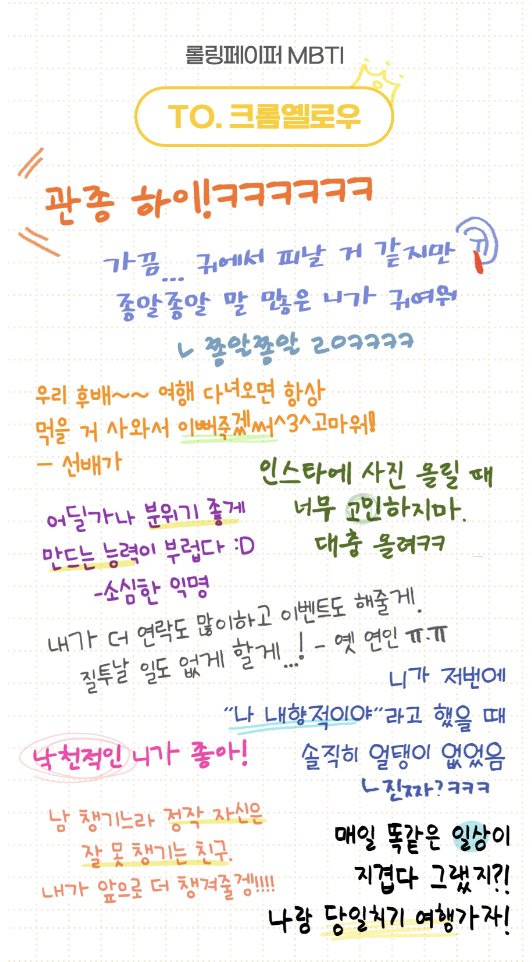 롤링페이퍼 MBTI
TO. 크롬옐로우
관종 하이!ㅋㅋㅋㅋㅋㅋ
가끔... 귀에서 피날 거 같지만
종알종알 말 많은 니가 귀여워
ㄴ 쫑알쫑알 20ㅋㅋㅋㅋ
우리 후배~~ 여행 다녀오면 항상
먹을 거 사와서 이뻐죽겠써^3^고마워!!
- 선배가
인스타에 사진 올릴 때
너무 고민하지마.
대충 올려ㅋㅋ
어딜가나 분위기 좋게
만드는 능력이 부럽다 :D
-소심한 익명
내가 더 연락도 많이하고 이벤트도 해줄게.
질투날 일도 없게 할게...! - 옛 연인 ㅠ.ㅠ
니가 저번에
"나 내향적이야"라고 했을 때
솔직히 얼탱이 없었음
ㄴ진짜?ㅋㅋㅋ
낙천적인 니가 좋아!
남 챙기느라 정작 자신은
잘 못 챙기는 친구.
내가 앞으로 더 챙겨줄겡!!!!
매일 똑같은 일상이
지겹다 그랬지?!
나랑 당일치기 여행가자!